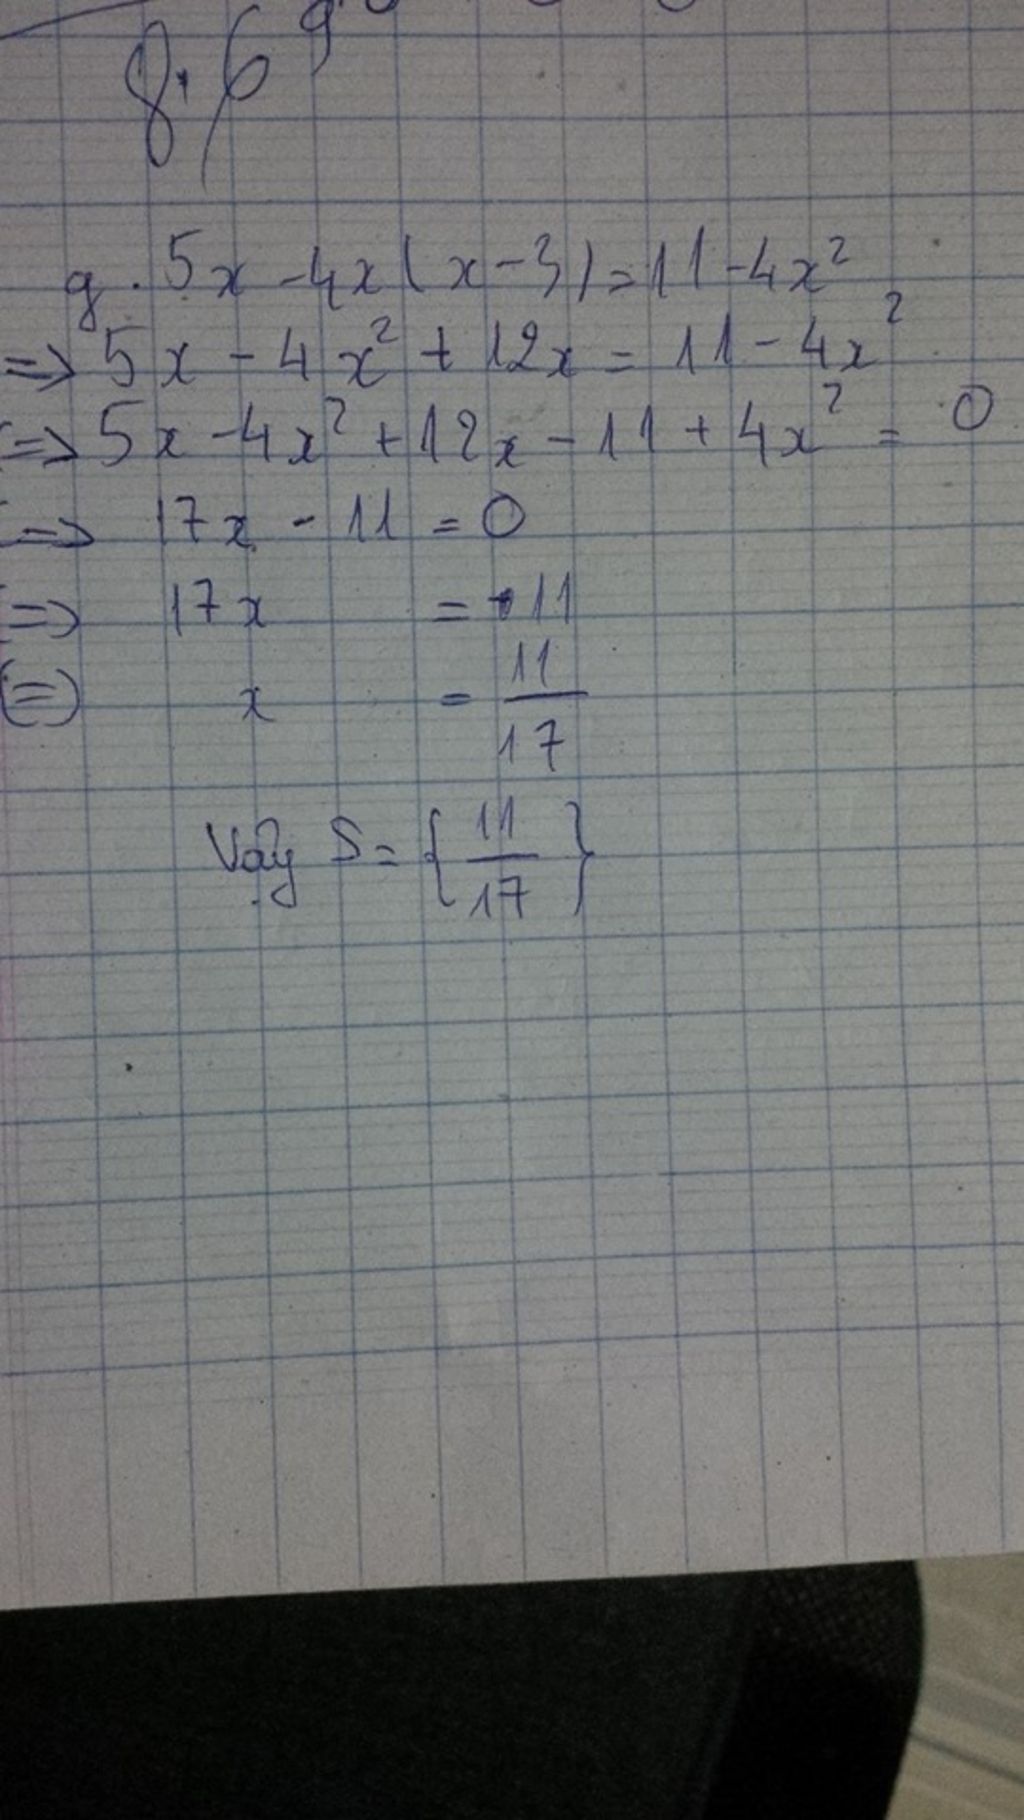 8.6
g. 5x - 4x(x-3) = 11 - 4x²
=> 5x - 4x² + 12x = 11 - 4x²
(=> 5x - 4x² + 12x - 11 + 4x² = 0
(=> 17x - 11 = 0
(=> 17x = 11
(=) x = 11/17
Vậy S = { 11/17 }